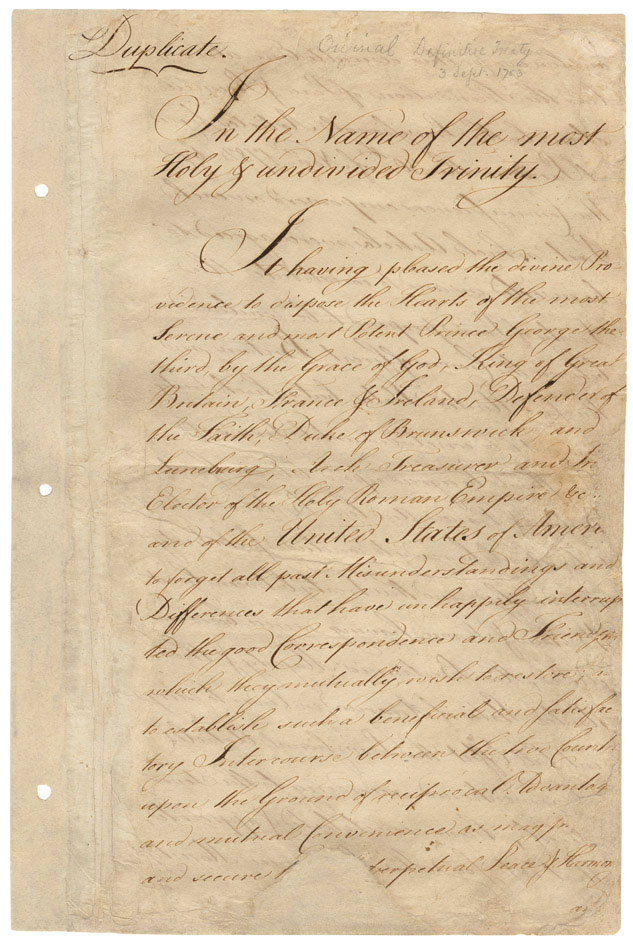 Duplicate.
Original Definitive Treaty
3 Sept. 1783
In the Name of the most
Holy & undivided Trinity.
It having pleased the divine Pro-
vidence to dispose the Hearts of the most
Serene and most Potent Prince George the
third, by the Grace of God, King of Great
Britain, France & Ireland, Defender of
the Faith, Duke of Brunswick and
Luneburg, Arch Treasurer and
Elector of the Holy Roman Empire &c..
and of the United States of Ameri
to forget all past Misunderstandings and
Differences that have unhappily interrup
ted the good Correspondence and
which they mutually wish to restore;
to establish such a beneficial and satisfac
tory Intercourse between the two Countr
upon the Ground of reciprocal Advantag
and mutual Convenience as may
and secure perpetual Peace & Harmon